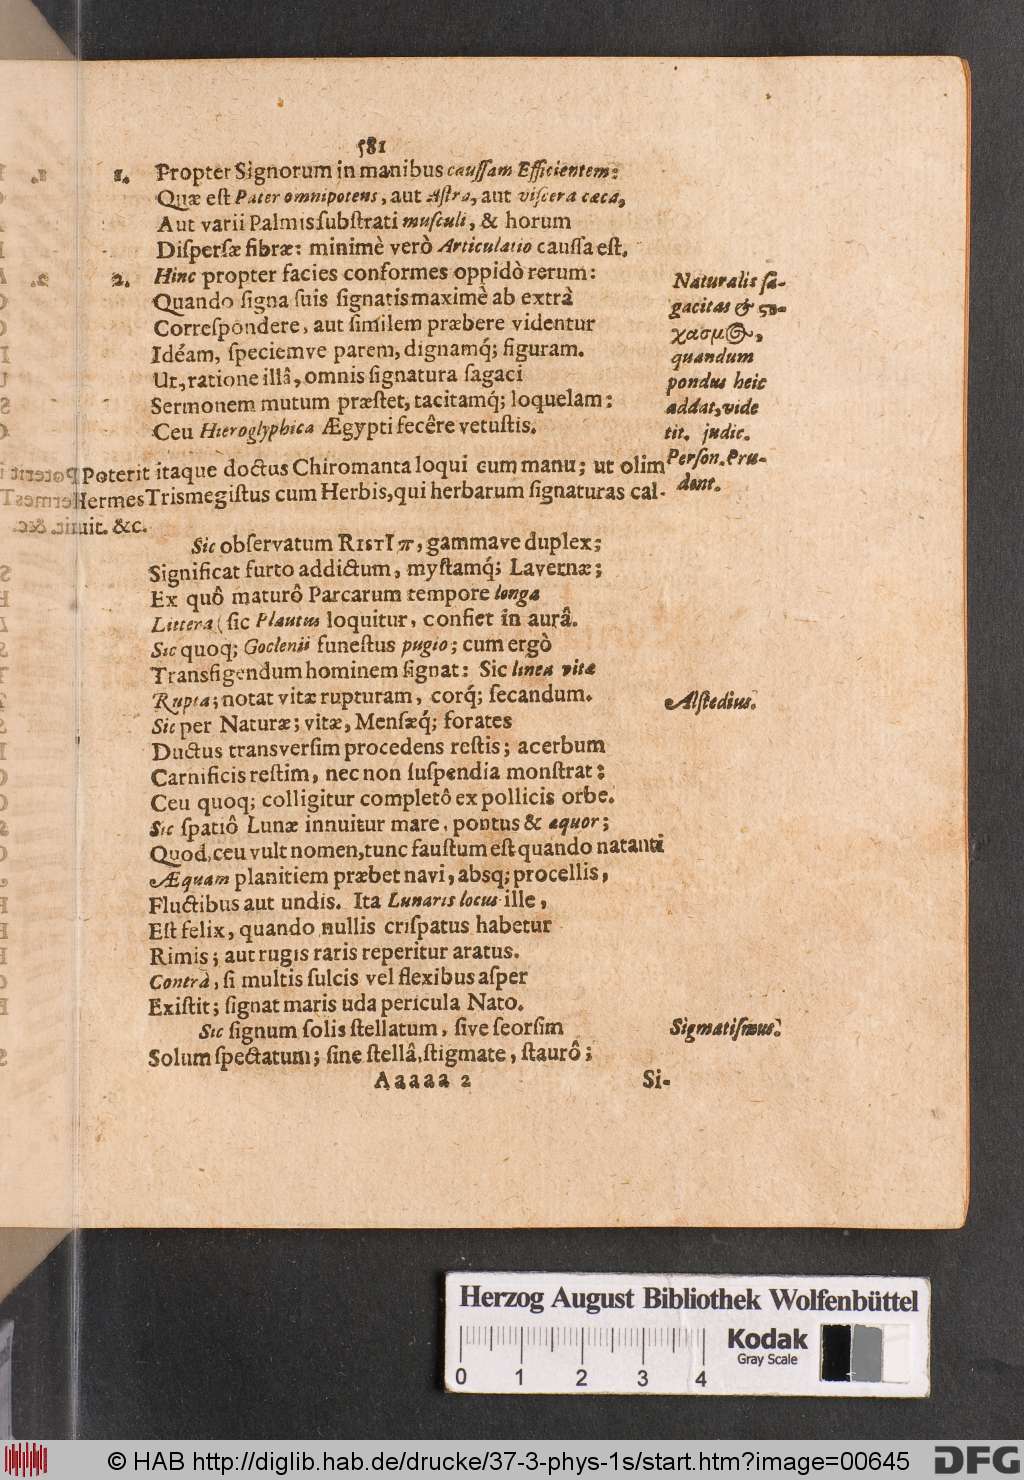 581
1. Propter Signorum in manibus cauſſam Efficientem:
Quæ eſt Pater omnipotens, aut Aſtra, aut viſcera cæca,
Aut varii Palmis ſubſtrati muſculi, & horum
Diſperſæ fibræ: minimè verò Articulatio cauſſa eſt.
2. Hinc propter facies conformes oppidò rerum:
Quando ſigna ſuis ſignatis maximè ab extrà
Correſpondere, aut ſimilem præbere videntur
Idéam, ſpeciemve parem, dignamq́; figuram.
Ut, ratione illâ, omnis ſignatura ſagaci
Sermonem mutum præſtet, tacitamq́; loquelam:
Ceu Hieroglyphica Ægypti fecêre vetuſtis.
Naturalis ſa-
gacitas & ςο-
χασμὸς,
quandum
pondus heic
addat, vide
tit. judic.
Perſon. Pru-
dent.
Poterit itaque doctus Chiromanta loqui cum manu; ut olim
Hermes Trismegiſtus cum Herbis, qui herbarum ſignaturas cal-
uit. &c.
Sic obſervatum RISTI π, gammave duplex;
Significat furto addictum, myſtamq́; Lavernæ;
Ex quô maturô Parcarum tempore longa
Littera (ſic Plautus loquitur, confiet in aurâ.
Sic quoq; Goclenii funeſtus pugio; cum ergò
Transfigendum hominem ſignat: Sic linea vitæ
Rupta; notat vitæ rupturam, corq́; ſecandum.
Alſtedius.
Sic per Naturæ; vitæ, Menſæq́; forates
Ductus transverſim procedens reſtis; acerbum
Carnificis reſtim, nec non ſuſpendia monſtrat:
Ceu quoq; colligitur completô ex pollicis orbe.
Sic ſpatiô Lunæ innuitur mare, pontus & æquor;
Quod, ceu vult nomen, tunc fauſtum eſt quando natanti
Æquam planitiem præbet navi, absq; procellis,
Fluctibus aut undis. Ita Lunaris locus ille,
Eſt felix, quando nullis criſpatus habetur
Rimis; aut rugis raris reperitur aratus.
Contrà, ſi multis ſulcis vel flexibus aſper
Exiſtit; ſignat maris uda pericula Nato.
Sic ſignum ſolis ſtellatum, ſive ſeorſim
Sigmatiſmus.
Solum ſpectatum; ſine ſtellâ, ſtigmate, ſtaurô;
Aaaaa 2
Si-
Herzog August Bibliothek Wolfenbüttel
Kodak
Gray Scale
0 1 2 3 4
© HAB http://diglib.hab.de/drucke/37-3-phys-1s/start.htm?image=00645
DFG